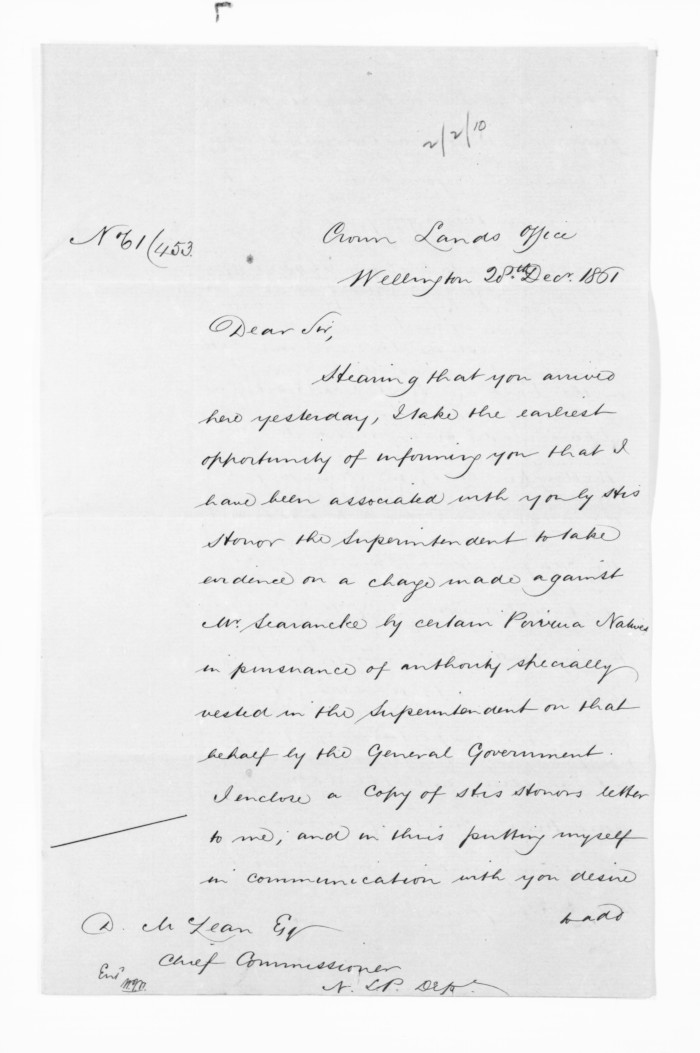 2/2/10
No 61/453.
Crown Lands Office
Wellington 28th Decr. 1861
Dear Sir,
Hearing that you arrived
here yesterday, I take the earliest
opportunity of informing you that I
have been associated with you by His
Honor the Superintendent to take
evidence on a charge made against
Mr. Searancke by certain Porirua Natives
in pursuance of authority specially
vested in the Superintendent on that
behalf by the General Government.
I enclose a copy of His Honors letter
to me; and in thus putting myself
in communication with you desire
to add
D. McLean Esq
Chief Commissioner
N. L. P. Dept.
Encl